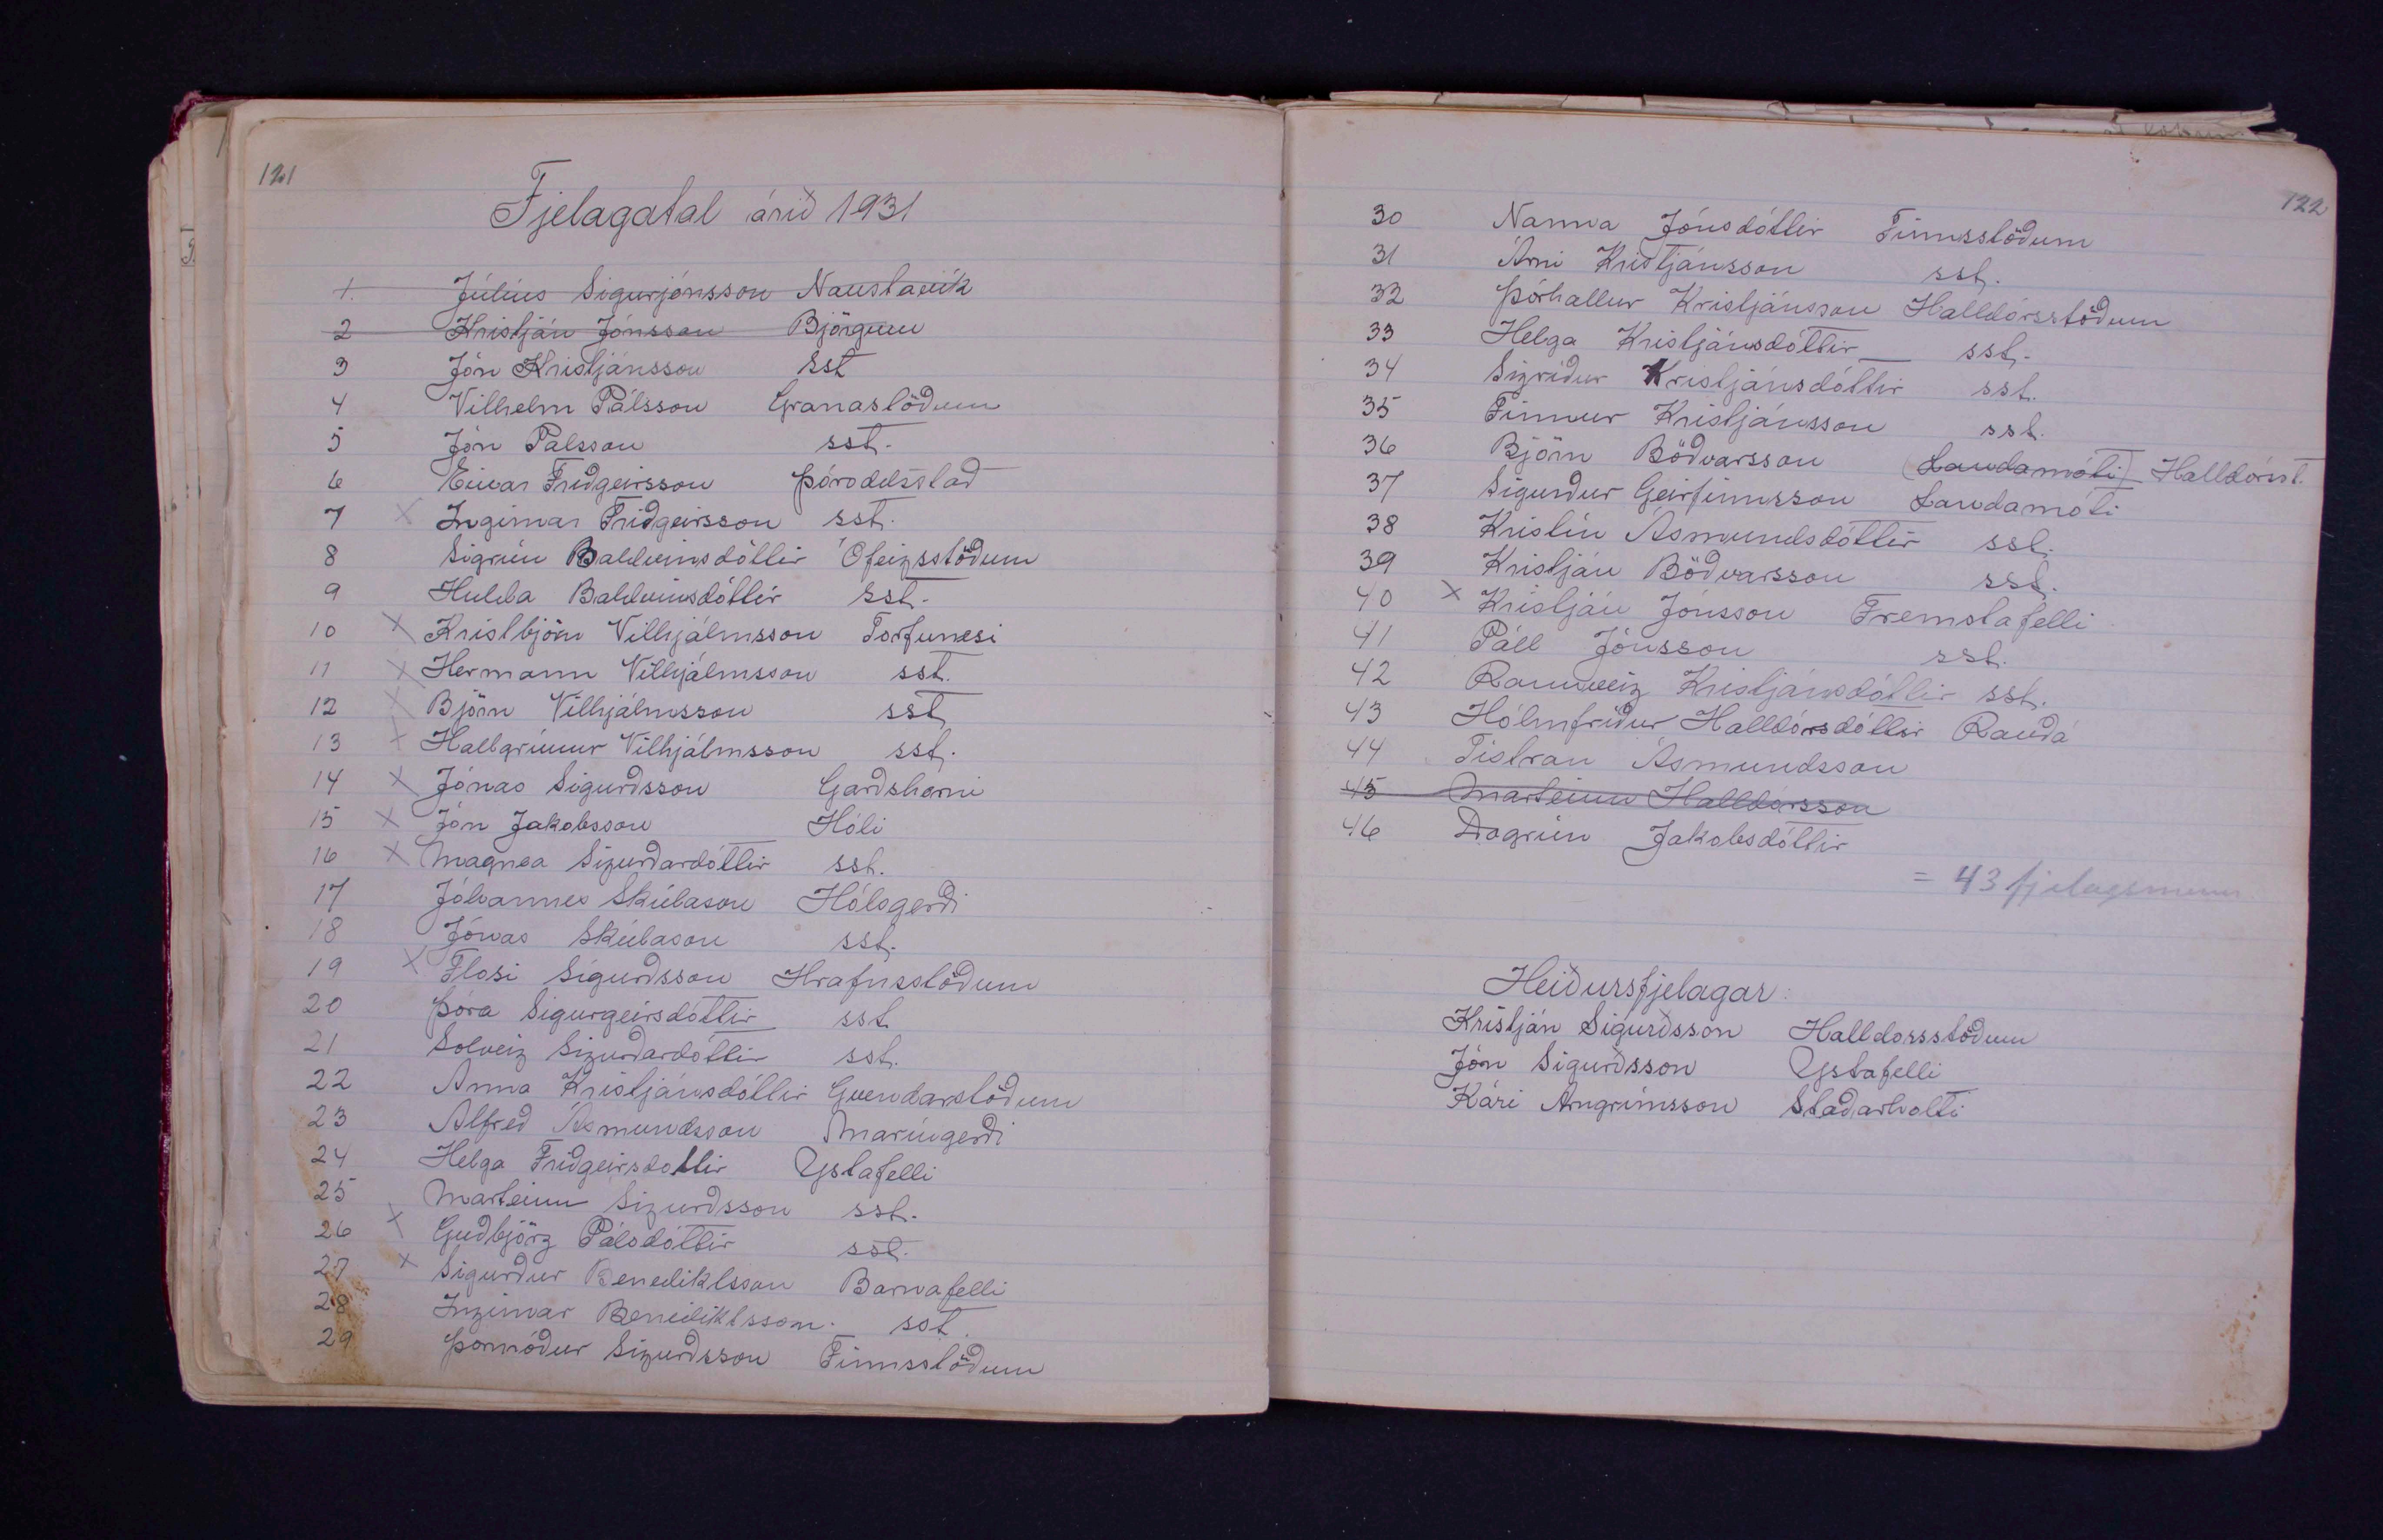 121
Fjelagatal árið 1931
1. Júlíus Sigurjónsson Naustavík
2 Kristján Jónsson Björgum
3 Jón Kristjánsson sst
4 Vilhelm Pálsson Granastöðum
5 Jón Pálsson sst.
6 Einar Friðgeirsson Þóroddsstað
7 x Ingimar Friðgeirsson sst.
8 Sigrún Baldvinsdóttir Ófeigsstöðum
9 Hulda Baldvinsdóttir sst.
10 x Kristbjörn Vilhjálmsson Torfunesi
11 x Hermann Vilhjálmsson sst.
12 x Björn Vilhjálmsson sst
13 x Hallgrímur Vilhjálmsson sst.
14 x Jónas Sigurðsson Garðshorni
15 x Jón Jakobsson Hóli
16 x Magnea Sigurðardóttir sst.
17 Jóhannes Skúlason Hólsgerði
18 Jónas Skúlason sst.
19 x Flosi Sigurðsson Hrafnsstöðum
20 Þóra Sigurgeirsdóttir sst
21 Solveig Sigurðardóttir sst.
22 Anna Kristjánsdóttir Guendarstöðum
23 Alfreð Ásmundsson Maríugerði
24 Helga Friðgeirsdottir Ystafelli
25 Marteinn Sigurðsson sst.
26 x Guðbjörg Pálsdóttir sst.
27 x Sigurður Benediktsson Barnafelli
28 Ingimar Benediktsson. sst.
29 Þormóður Sigurðsson Finnsstöðum
122
30 Nanna Jónsdóttir Finnsstöðum
31 Árni Kristjánsson sst.
32 Þórhallur Kristjánsson Halldórsstöðum
33 Helga Kristjánsdóttir sst.
34 Sigríður Kristjánsdóttir sst.
35 Finnur Kristjánsson sst.
36 Björn Böðvarsson (Landamóti) Halldórsst.
37 Sigurður Geirfinnsson Landamóti
38 Kristín Ásmundsdóttir sst.
39 Kristján Böðvarsson sst.
40 x Kristján Jónsson Fremstafelli
41 Páll Jónsson sst.
42 Rannveig Kristjánsdóttir sst.
43 Hólmfríður Halldórsdóttir Rauðá
44 Tistran Ásmundsson
45 Marteinn Halldórsson
46 Dagrún Jakobsdóttir
= 43 fjelagsmenn
Heiðursfjelagar:
Kristján Sigurðsson Halldorsstöðum
Jón Sigurðsson Ystafelli
Kári Arngrímsson Staðarholti